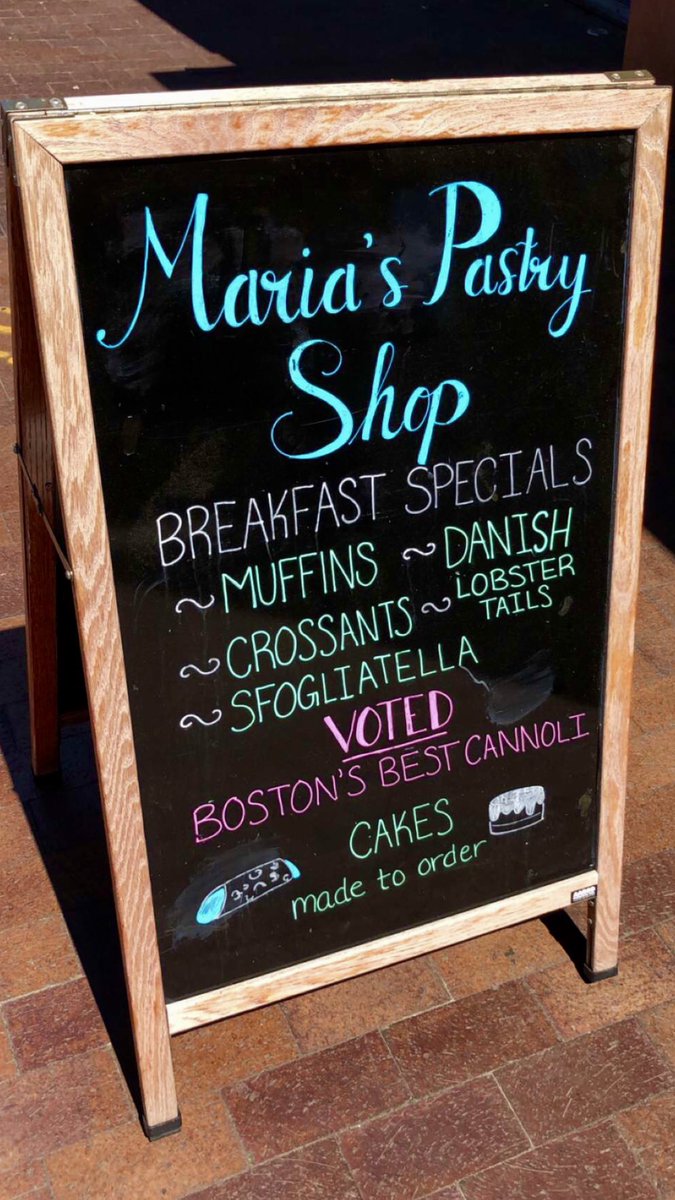 Maria's Pastry
Shop
BREAKFAST SPECIALS
~ MUFFINS ~ DANISH
~ CROSSANTS ~ LOBSTER TAILS
~ SFOGLIATELLA
VOTED
BOSTON'S BEST CANNOLI
CAKES
made to order